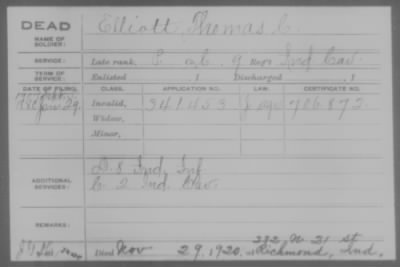 DEAD
NAME OF SOLDIER:
Elliott, Thomas C.
SERVICE:
Late rank, C 9 Reg't Ind Cav.
TERM OF SERVICE:
Enlisted , 1 Discharged , 1
DATE OF FILING. CLASS. APPLICATION NO. LAW. CERTIFICATE NO.
Invalid, 341453 706872
Widow,
Minor,
ADDITIONAL SERVICES:
D. 8 Ind. Inf.
C. 2 Ind. Cav.
REMARKS:
382 N 21 st
Died Nov 29, 1920, at Richmond, Ind.